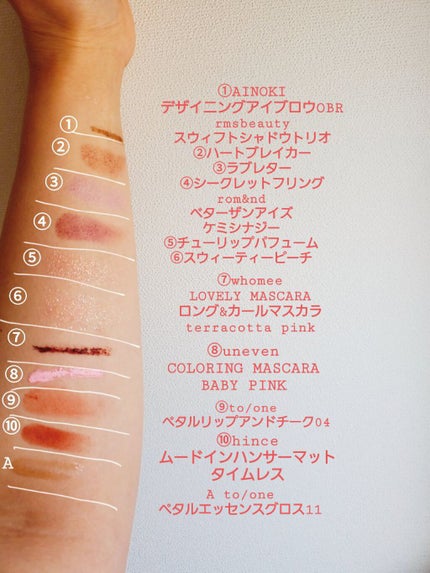 ①
②
③
④
⑤
⑥
⑦
⑧
⑨
⑩
A
①AINOKI
デザイニングアイブロウOBR
rmsbeauty
スウィフトシャドウトリオ
②ハートブレイカー
③ラブレター
④シークレットフリング
rom&nd
ベターザンアイズ
ケミシナジー
⑤チューリップパフューム
⑥スウィーティーピーチ
⑦whomee
LOVELY MASCARA
ロング&カールマスカラ
terracotta pink
⑧uneven
COLORING MASCARA
BABY PINK
⑨to/one
ペタルリップアンドチーク04
⑩hince
ムードインハンサーマット
タイムレス
A to/one
ペタルエッセンスグロス11